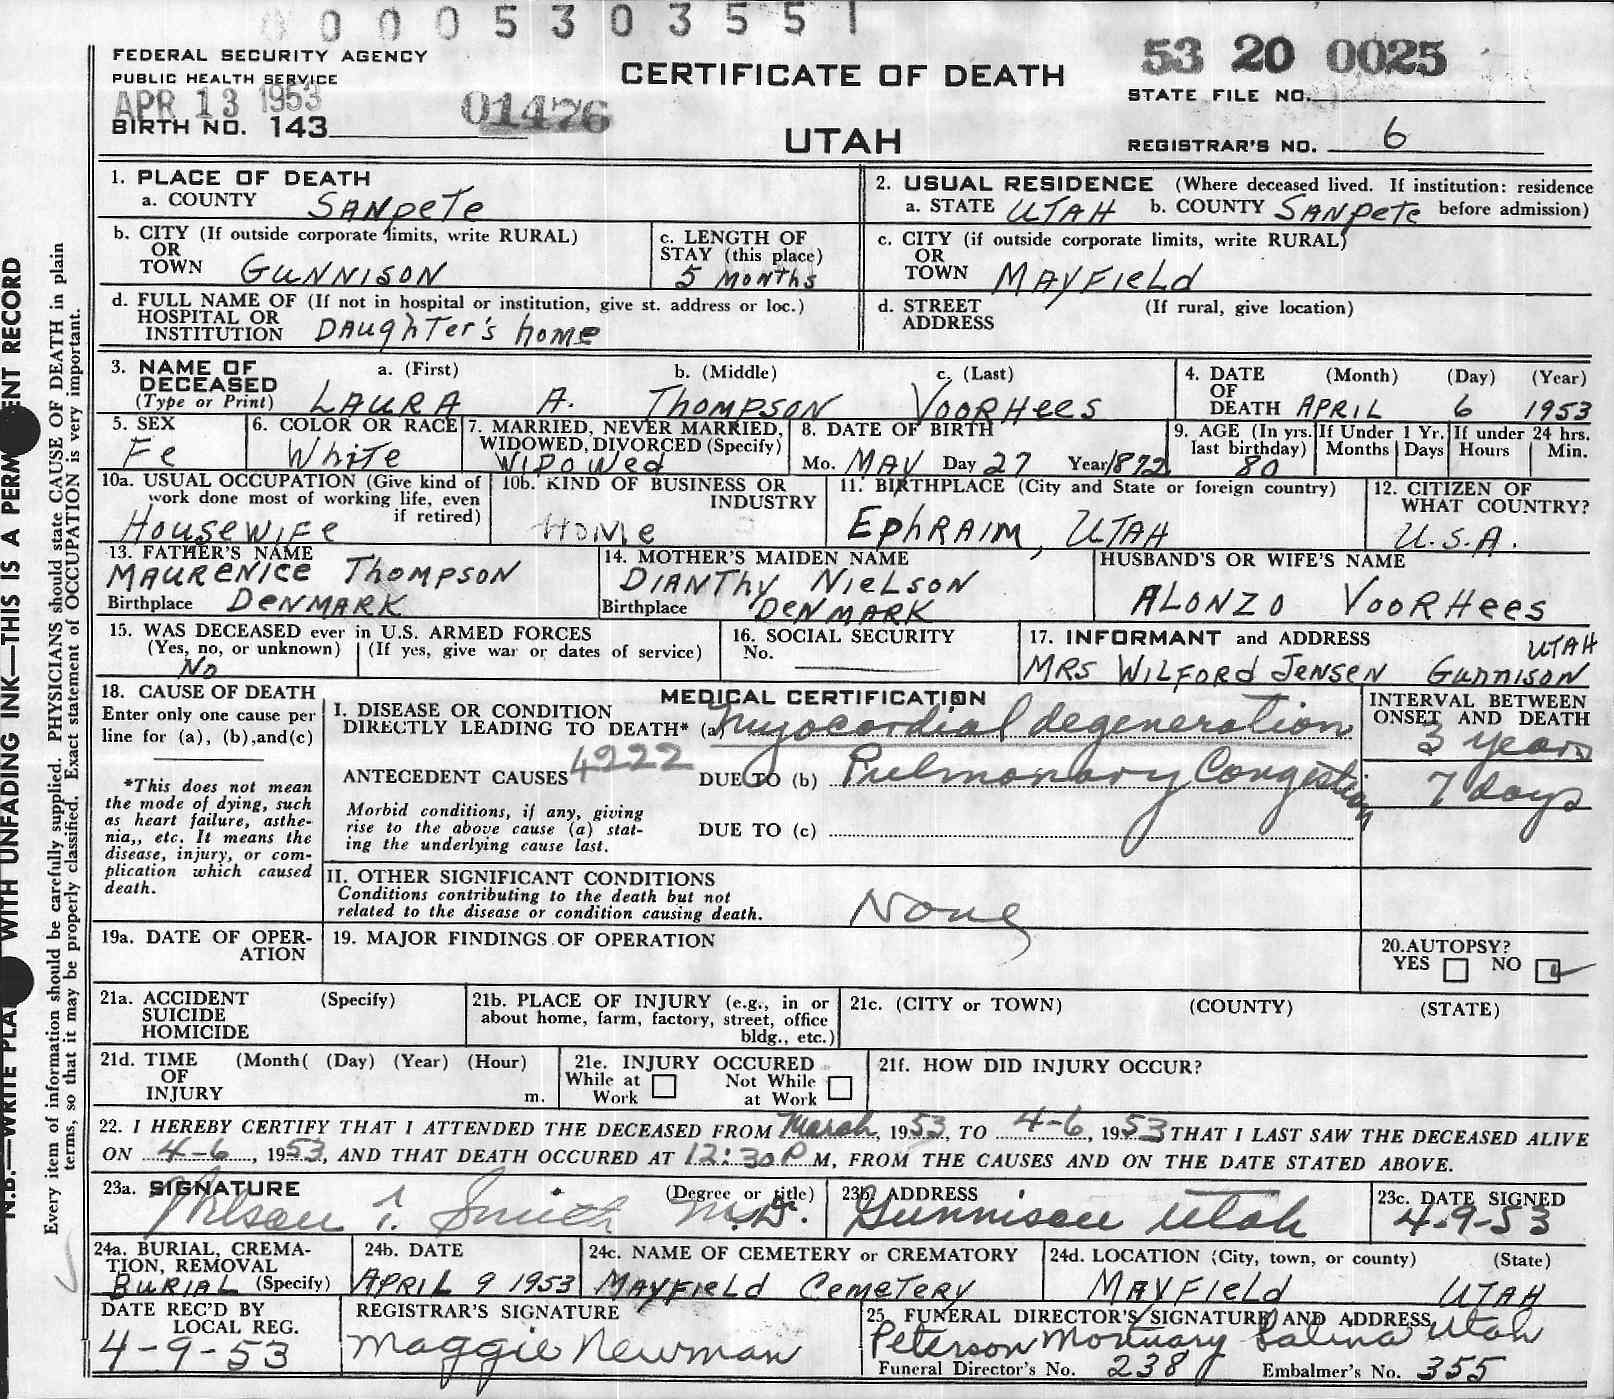 0 0 0 0 5 3 0 3 5 5 1
FEDERAL SECURITY AGENCY
PUBLIC HEALTH SERVICE
APR 13 1953
BIRTH NO. 143
01476
CERTIFICATE OF DEATH
UTAH
53 20 0025
STATE FILE NO.
REGISTRAR'S NO. 6
1. PLACE OF DEATH
a. COUNTY SANPETE
2. USUAL RESIDENCE (Where deceased lived. If institution: residence
a. STATE UTAH b. COUNTY SANPETE before admission)
b. CITY (If outside corporate limits, write RURAL)
OR
TOWN GUNNISON
c. LENGTH OF
STAY (this place)
5 MONTHS
c. CITY (if outside corporate limits, write RURAL)
OR
TOWN MAYFIELD
d. FULL NAME OF (If not in hospital or institution, give st. address or loc.)
HOSPITAL OR
INSTITUTION DAUGHTER'S HOME
d. STREET (If rural, give location)
ADDRESS
3. NAME OF a. (First) b. (Middle) c. (Last)
DECEASED
(Type or Print) LAURA A. THOMPSON VOORHEES
4. DATE (Month) (Day) (Year)
OF
DEATH APRIL 6 1953
5. SEX
Fe
6. COLOR OR RACE
White
7. MARRIED, NEVER MARRIED,
WIDOWED, DIVORCED (Specify)
WIDOWED
8. DATE OF BIRTH
Mo. MAY Day 27 Year 1872
9. AGE (In yrs.
last birthday)
80
If Under 1 Yr.
Months Days
If under 24 hrs.
Hours Min.
10a. USUAL OCCUPATION (Give kind of
work done most of working life, even
if retired)
HOUSEWIFE
10b. KIND OF BUSINESS OR
INDUSTRY
HOME
11. BIRTHPLACE (City and State or foreign country)
EPHRAIM, UTAH
12. CITIZEN OF
WHAT COUNTRY?
U.S.A.
13. FATHER'S NAME
MAURENICE THOMPSON
Birthplace DENMARK
14. MOTHER'S MAIDEN NAME
DIANTHY NIELSON
Birthplace DENMARK
HUSBAND'S OR WIFE'S NAME
ALONZO VOORHEES
15. WAS DECEASED ever in U.S. ARMED FORCES
(Yes, no, or unknown) (If yes, give war or dates of service)
No
16. SOCIAL SECURITY
No.
17. INFORMANT and ADDRESS UTAH
MRS WILFORD JENSEN GUNNISON
18. CAUSE OF DEATH
Enter only one cause per
line for (a), (b),and(c)
*This does not mean
the mode of dying, such
as heart failure, asthe-
nia,, etc. It means the
disease, injury, or com-
plication which caused
death.
MEDICAL CERTIFICATION
I. DISEASE OR CONDITION
DIRECTLY LEADING TO DEATH* (a) myocordial degeneration
ANTECEDENT CAUSES 4222 DUE TO (b) Pulmonary Congestion
Morbid conditions, if any, giving
rise to the above cause (a) stat-
ing the underlying cause last.
DUE TO (c)
INTERVAL BETWEEN
ONSET AND DEATH
3 years
7 days
II. OTHER SIGNIFICANT CONDITIONS
Conditions contributing to the death but not
related to the disease or condition causing death.
None
19a. DATE OF OPER-
ATION
19. MAJOR FINDINGS OF OPERATION
20.AUTOPSY?
YES NO ✓
21a. ACCIDENT (Specify)
SUICIDE
HOMICIDE
21b. PLACE OF INJURY (e.g., in or
about home, farm, factory, street, office
bldg., etc.)
21c. (CITY or TOWN) (COUNTY) (STATE)
21d. TIME (Month( (Day) (Year) (Hour)
OF
INJURY m.
21e. INJURY OCCURED
While at Not While
Work at Work
21f. HOW DID INJURY OCCUR?
22. I HEREBY CERTIFY THAT I ATTENDED THE DECEASED FROM March, 1953, TO 4-6, 1953 THAT I LAST SAW THE DECEASED ALIVE
ON 4-6, 1953, AND THAT DEATH OCCURED AT 12:30P M, FROM THE CAUSES AND ON THE DATE STATED ABOVE.
23a. SIGNATURE (Degree or title)
Smith M.D.
23b. ADDRESS
Gunnison Utah
23c. DATE SIGNED
4-9-53
24a. BURIAL, CREMA-
TION, REMOVAL
BURIAL (Specify)
24b. DATE
APRIL 9 1953
24c. NAME OF CEMETERY or CREMATORY
MAYFIELD CEMETERY
24d. LOCATION (City, town, or county) (State)
MAYFIELD UTAH
DATE REC'D BY
LOCAL REG.
4-9-53
REGISTRAR'S SIGNATURE
Maggie Newman
25. FUNERAL DIRECTOR'S SIGNATURE AND ADDRESS
Peterson Mortuary Salina Utah
Funeral Director's No. 238 Embalmer's No. 355
N.B.—WRITE PLA WITH UNFADING INK—THIS IS A PERM ENT RECORD
Every item of information should be carefully supplied. PHYSICIANS should state CAUSE OF DEATH in plain
terms, so that it may be properly classified. Exact statement of OCCUPATION is very important.